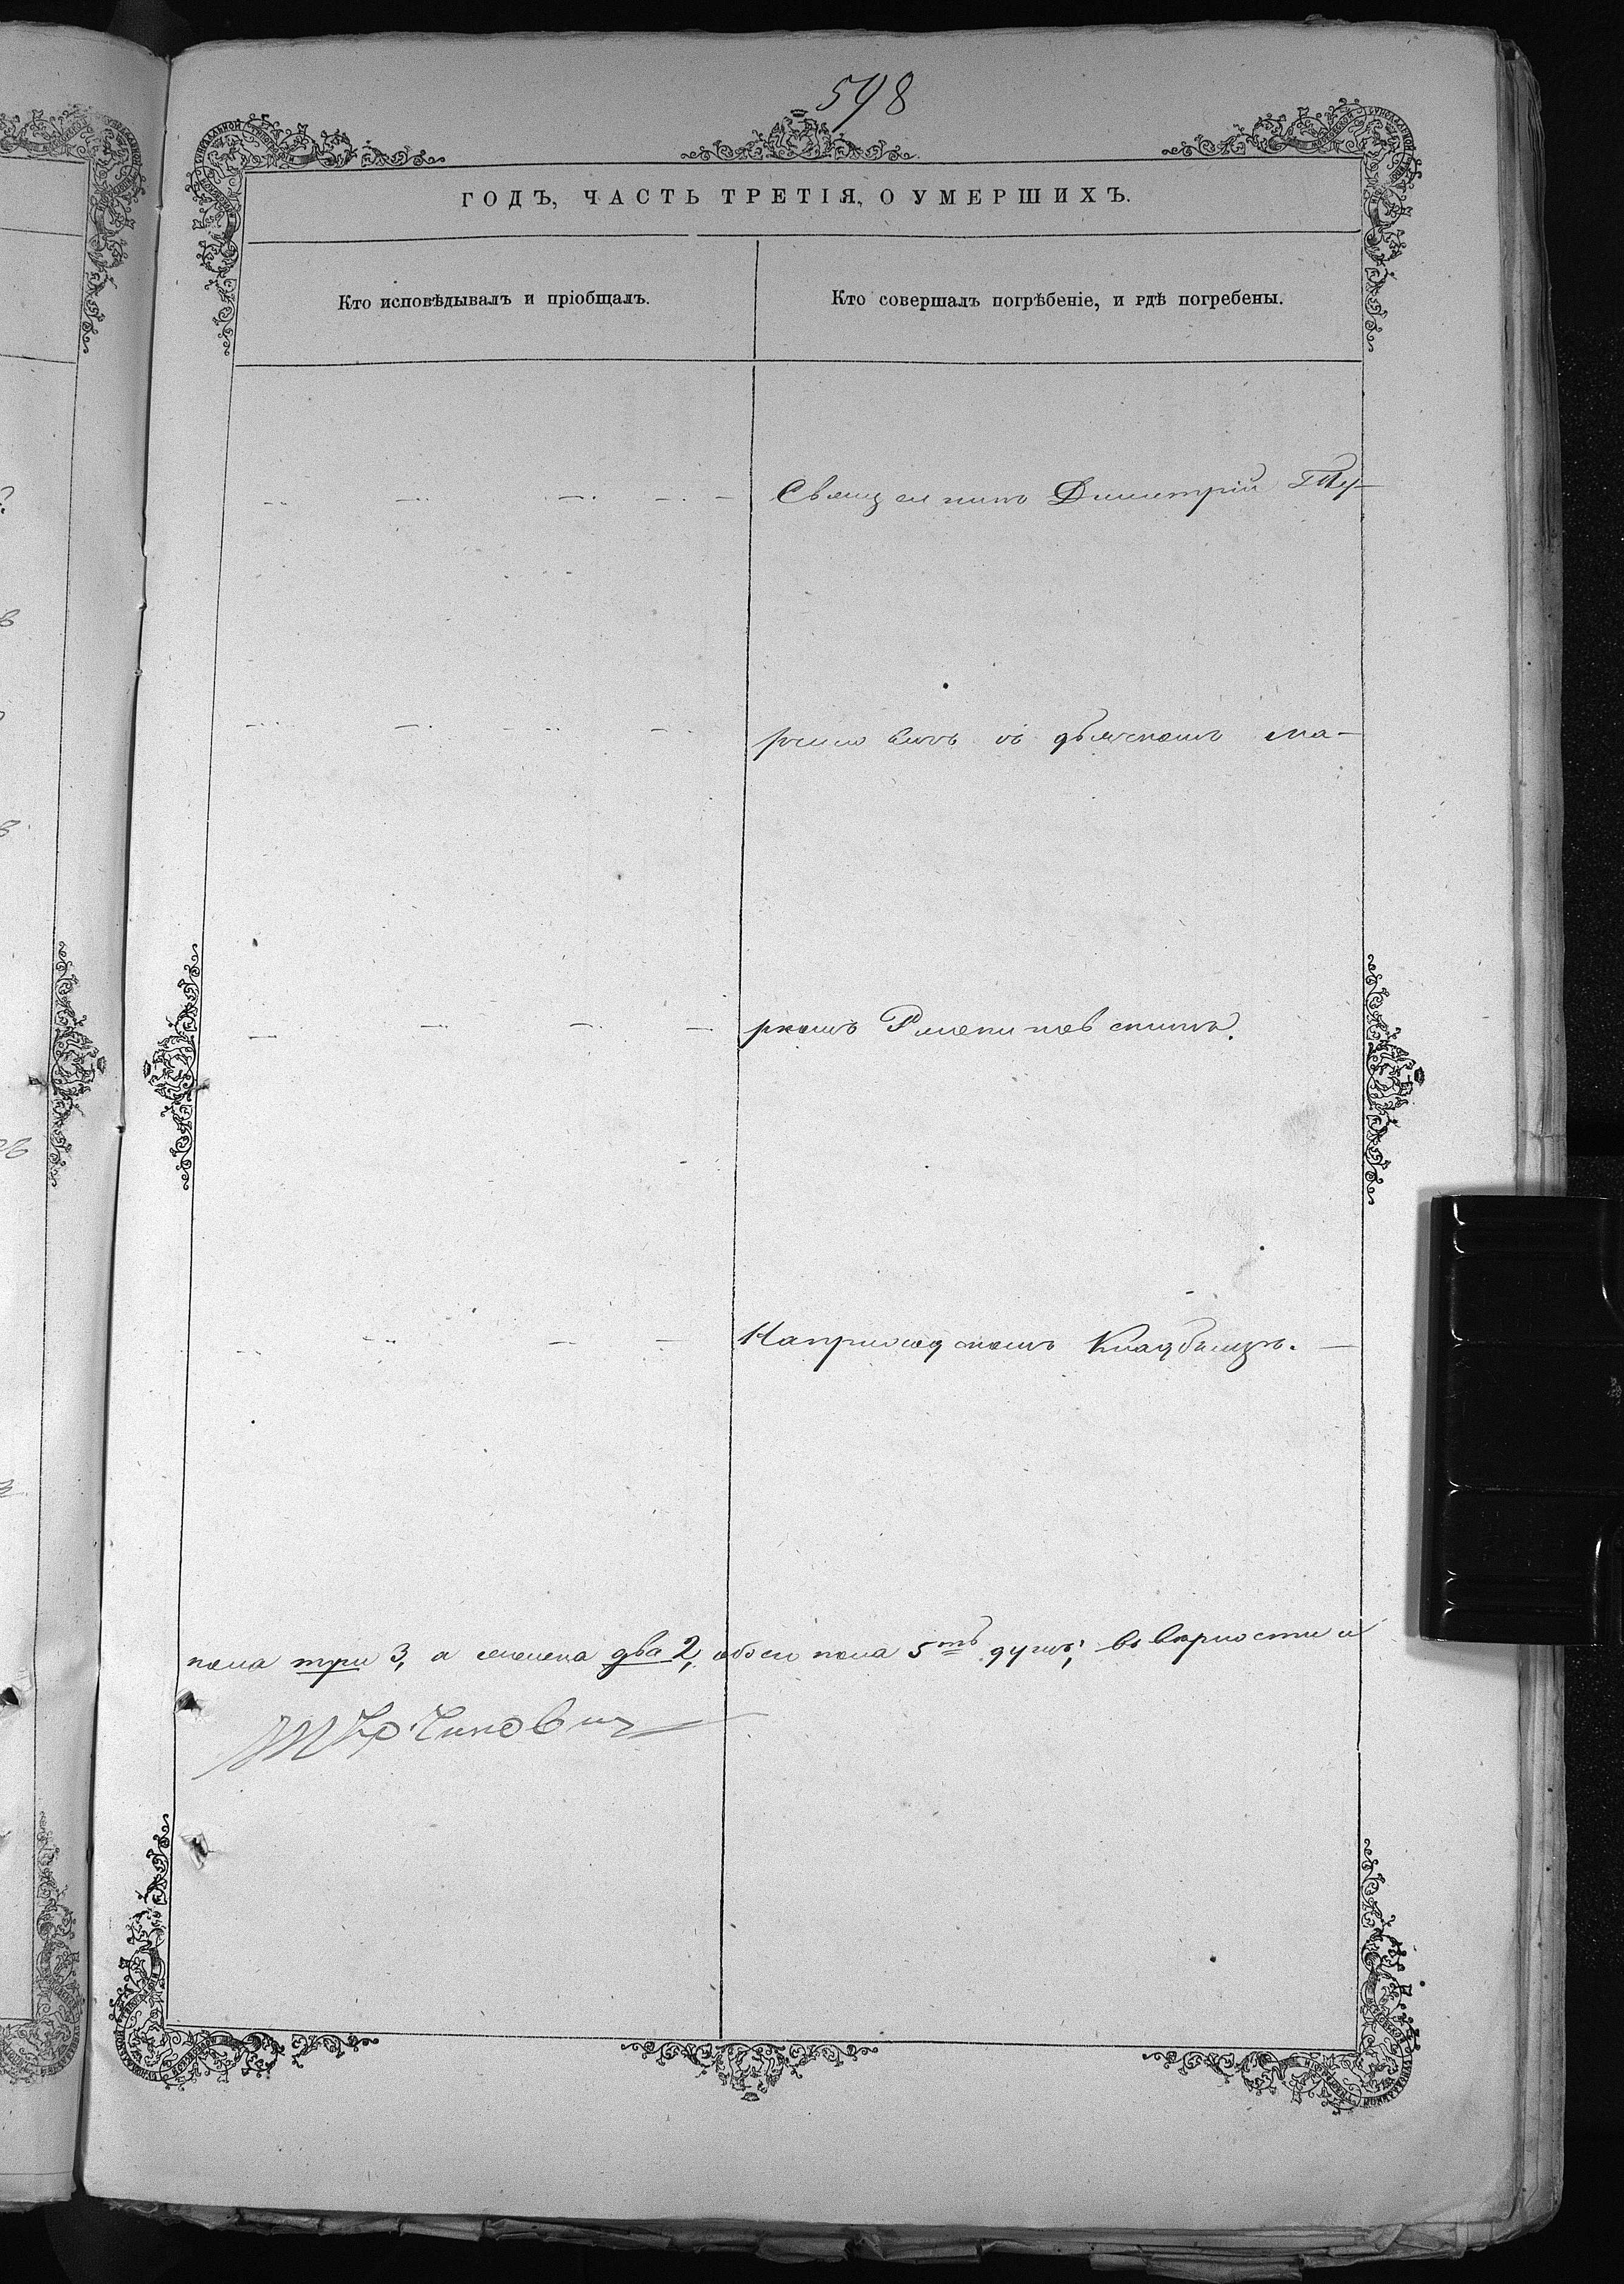 598
ГОДЪ, ЧАСТЬ ТРЕТІЯ, О УМЕРШИХЪ.
Кто исповѣдывалъ и пріобщалъ.
Кто совершалъ погрѣбеніе, и гдѣ погребены.
Священникъ Димитрій
съ дьячкомъ Ма-
ркомъ
На приходскомъ Кладбищѣ.
пола три 3, а женска два 2, обоего пола 5ть душъ; въ вѣрности и